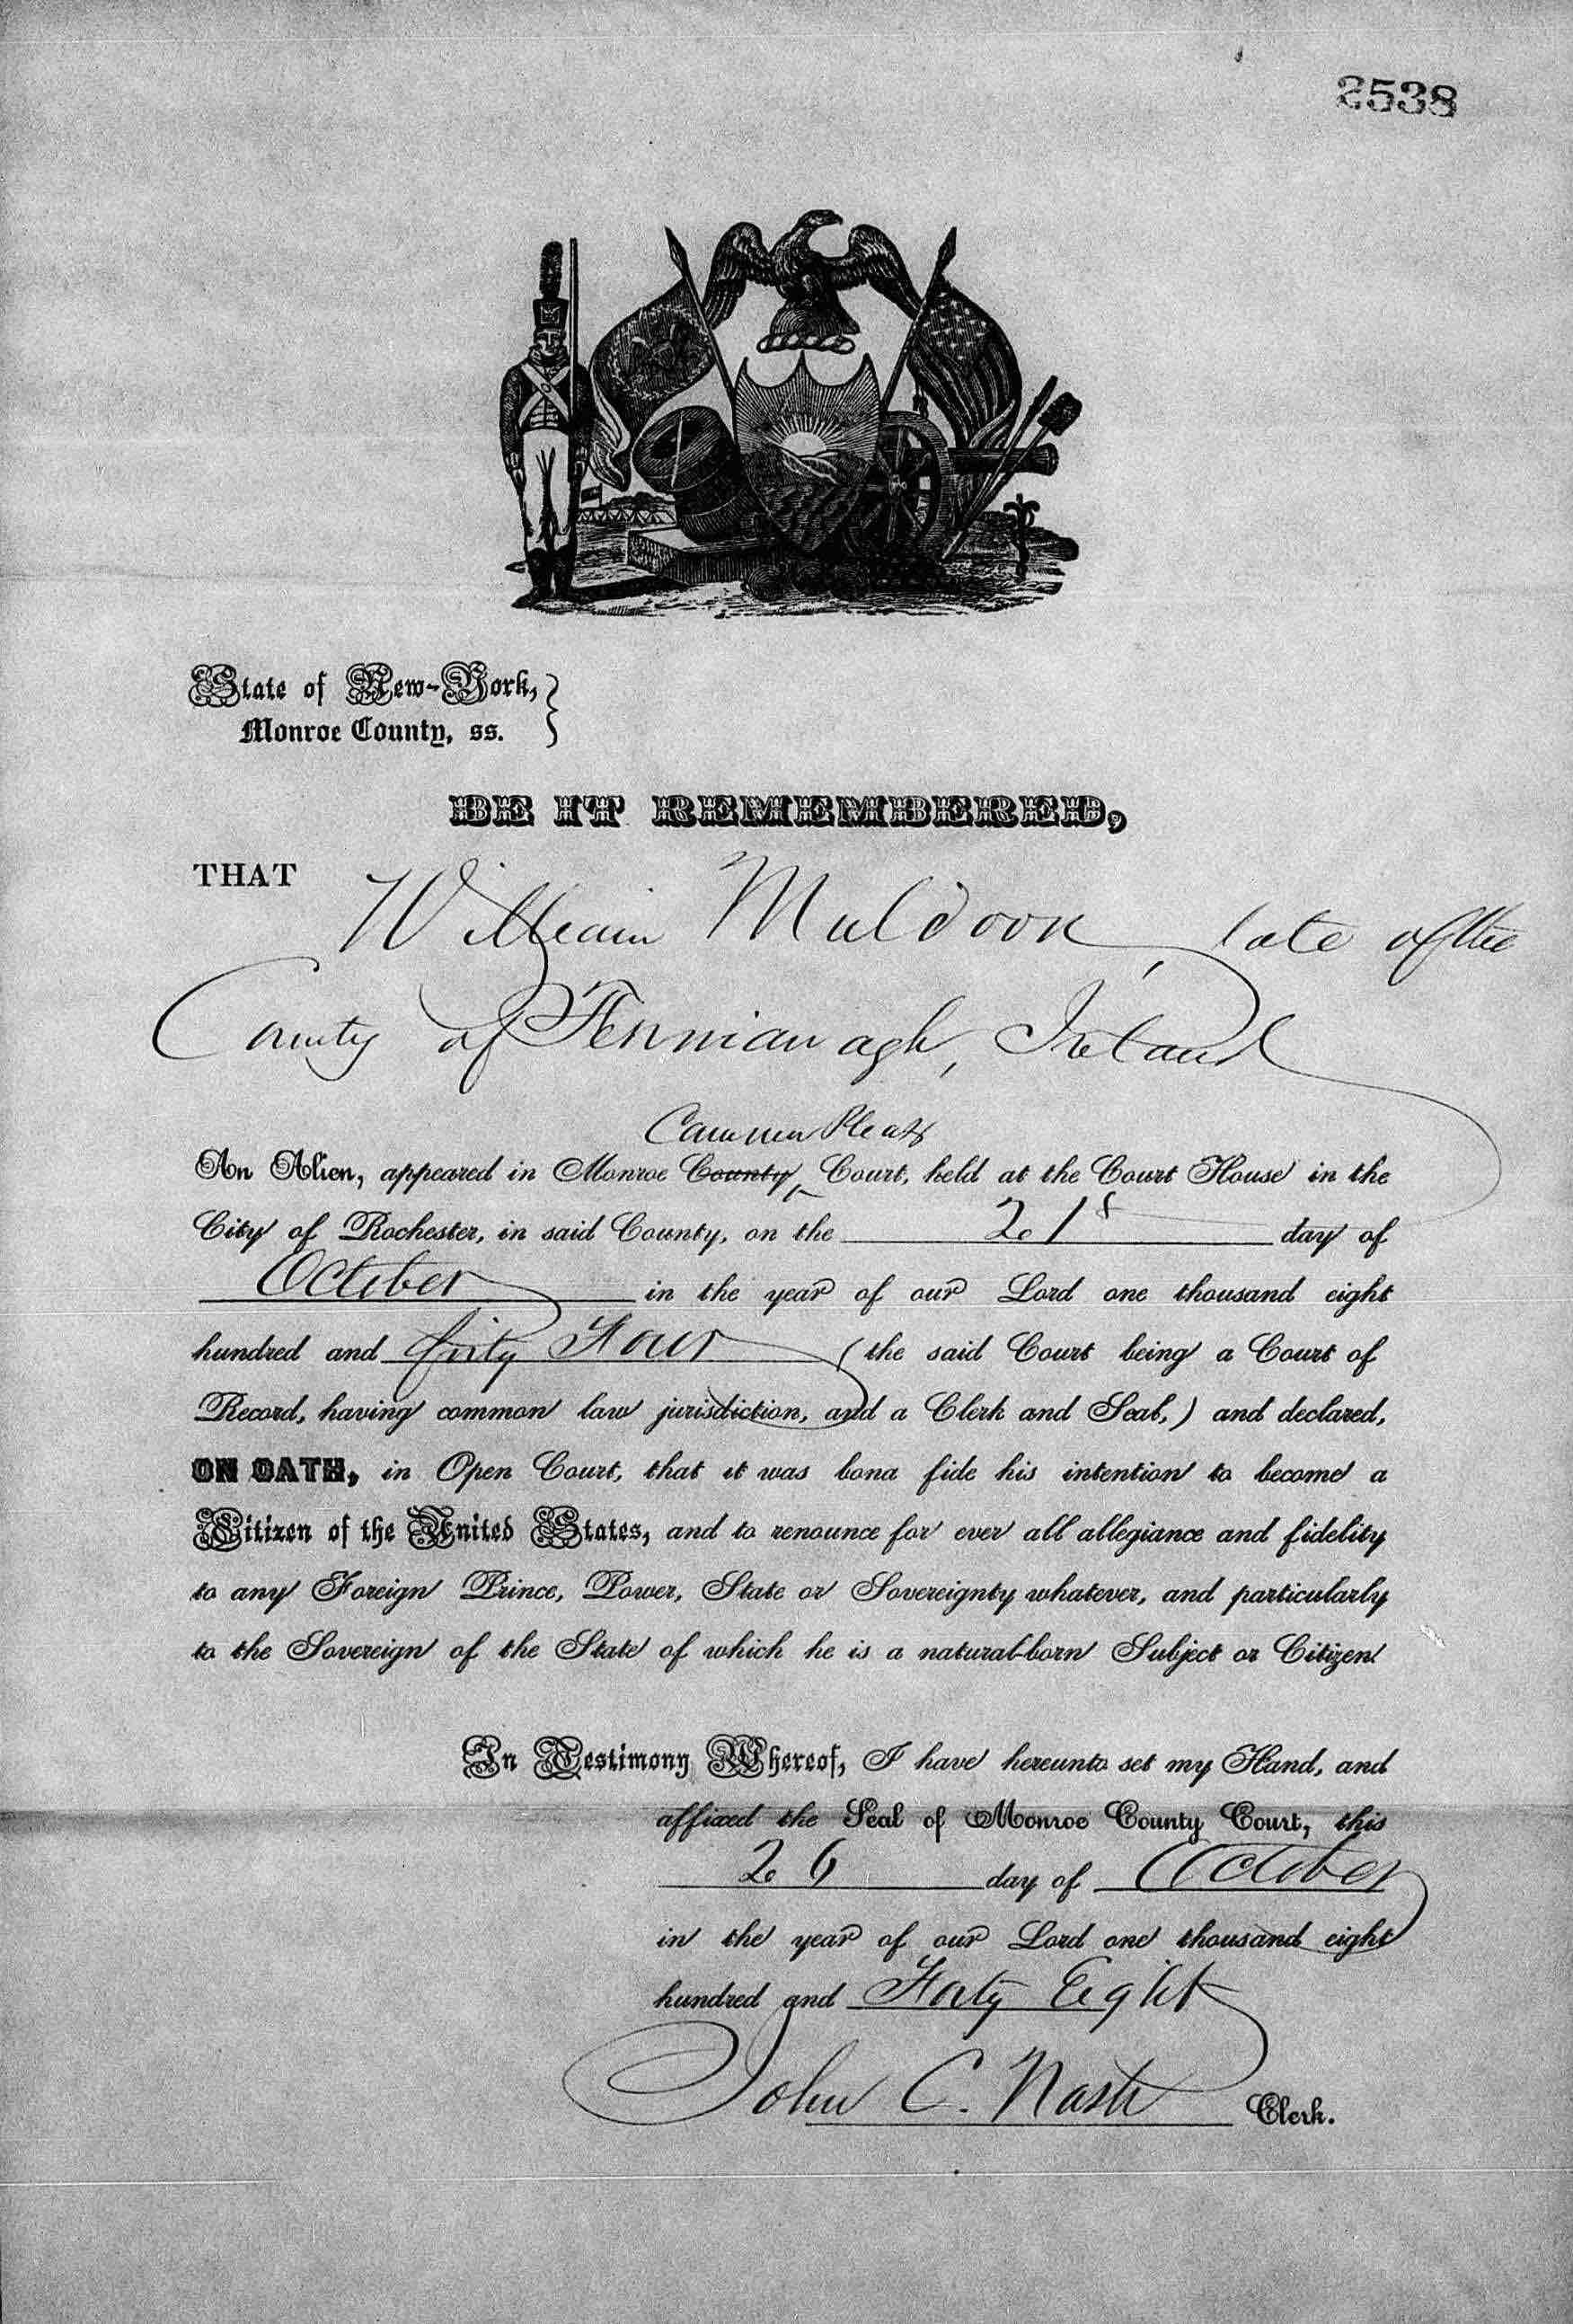 2538
State of New-York,
Monroe County, ss.
BE IT REMEMBERED,
THAT William Muldoon, late of the
County of Fermanagh, Ireland
Common Pleas
An Alien, appeared in Monroe County Court, held at the Court House in the
City of Rochester, in said County, on the 21st day of
October in the year of our Lord one thousand eight
hundred and forty Four (the said Court being a Court of
Record, having common law jurisdiction, and a Clerk and Seal,) and declared,
ON OATH, in Open Court, that it was bona fide his intention to become a
Citizen of the United States, and to renounce for ever all allegiance and fidelity
to any Foreign Prince, Power, State or Sovereignty whatever, and particularly
to the Sovereign of the State of which he is a natural-born Subject or Citizen
In Testimony Whereof, I have hereunto set my Hand, and
affixed the Seal of Monroe County Court, this
26 day of October
in the year of our Lord one thousand eight
hundred and Forty Eight
John C. Nash Clerk.